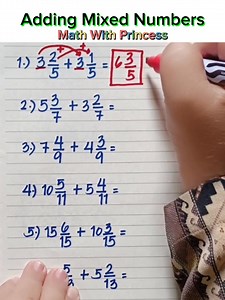 Adding Mixed Numbers
Math With Princess
1.) 3 2/5 + 3 1/5 = 6 3/5
2.) 5 3/7 + 3 2/7 =
3.) 7 4/9 + 4 3/9 =
4.) 10 5/11 + 5 4/11 =
5.) 15 6/15 + 10 3/15 =
+ 5 2/13 =